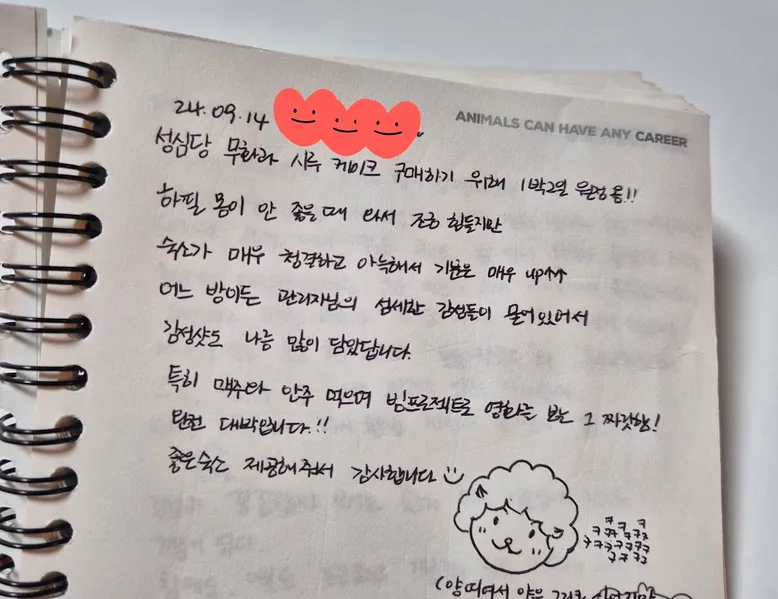 ANIMALS CAN HAVE ANY CAREER
24.09.14
성심당 무화과 시루 케이크 구매하기 위해 1박2일 원정옴!!
하필 몸이 안 좋을때 와서 조금 힘들지만
숙소가 매우 청결하고 아늑해서 기분은 매우 up↑↑
어느 방이든 관리자님의 섬세한 감성들이 묻어있어서
감성샷도 나름 많이 담았답니다.
특히 맥주와 안주 먹으며 빔프로젝트로 영화를 보는 그 짜릿함!
완전 대박입니다.!!
좋은숙소 제공해주셔서 감사합니다
ㅋㅋㅋ
(양띠여서 양을